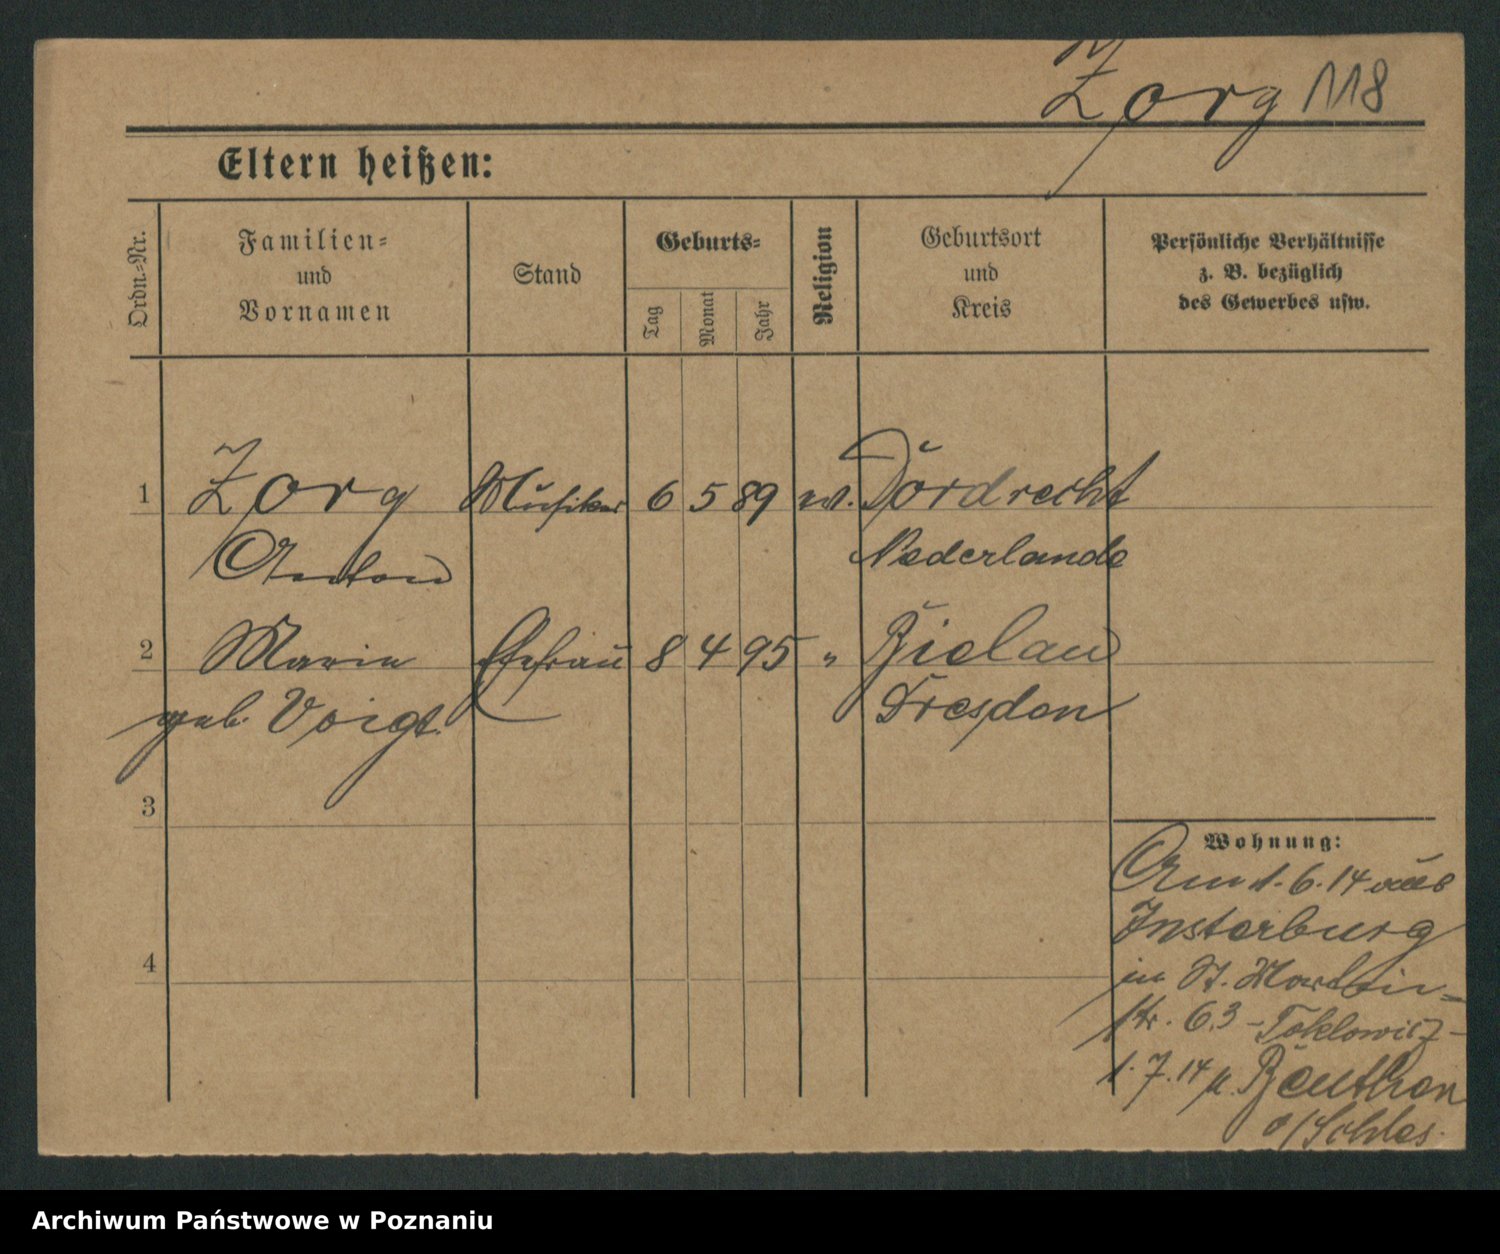 Zorg 118
Eltern heißen:
Ordn.-Nr.
Familien-
und
Vornamen
Stand
Geburts-
Tag
Monat
Jahr
Religion
Geburtsort
und
Kreis
Persönliche Verhältnisse
z. B. bezüglich
des Gewerbes usw.
1 Zorg Musiker 6 5 89 ev. Dordrecht
Anton Nederlande
2 Marie Ehefrau 8 4 95 " Bielau
geb. Voigt Dresden
3
4
Wohnung:
Am 1.6.14 aus
Insterburg
in St. Martin-
str. 63 - Toklowicz -
1.7.14 n. Beuthen
o/Schles.
Archiwum Państwowe w Poznaniu